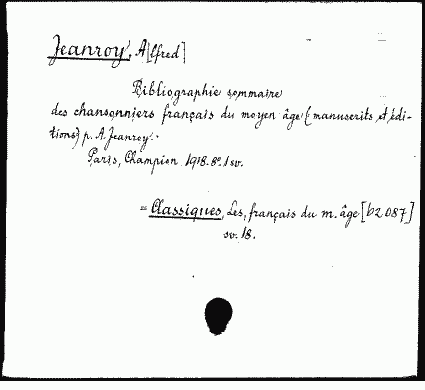 Jeanroy, A[lfred]
Bibliographie sommaire
des chansonniers français du moyen âge (manuscrits et édi-
tions) p. A. Jeanroy.
Paris, Champion 1918. 8°. 1 sv.
= Classiques, Les, français du m. âge [b2087]
sv. 18.